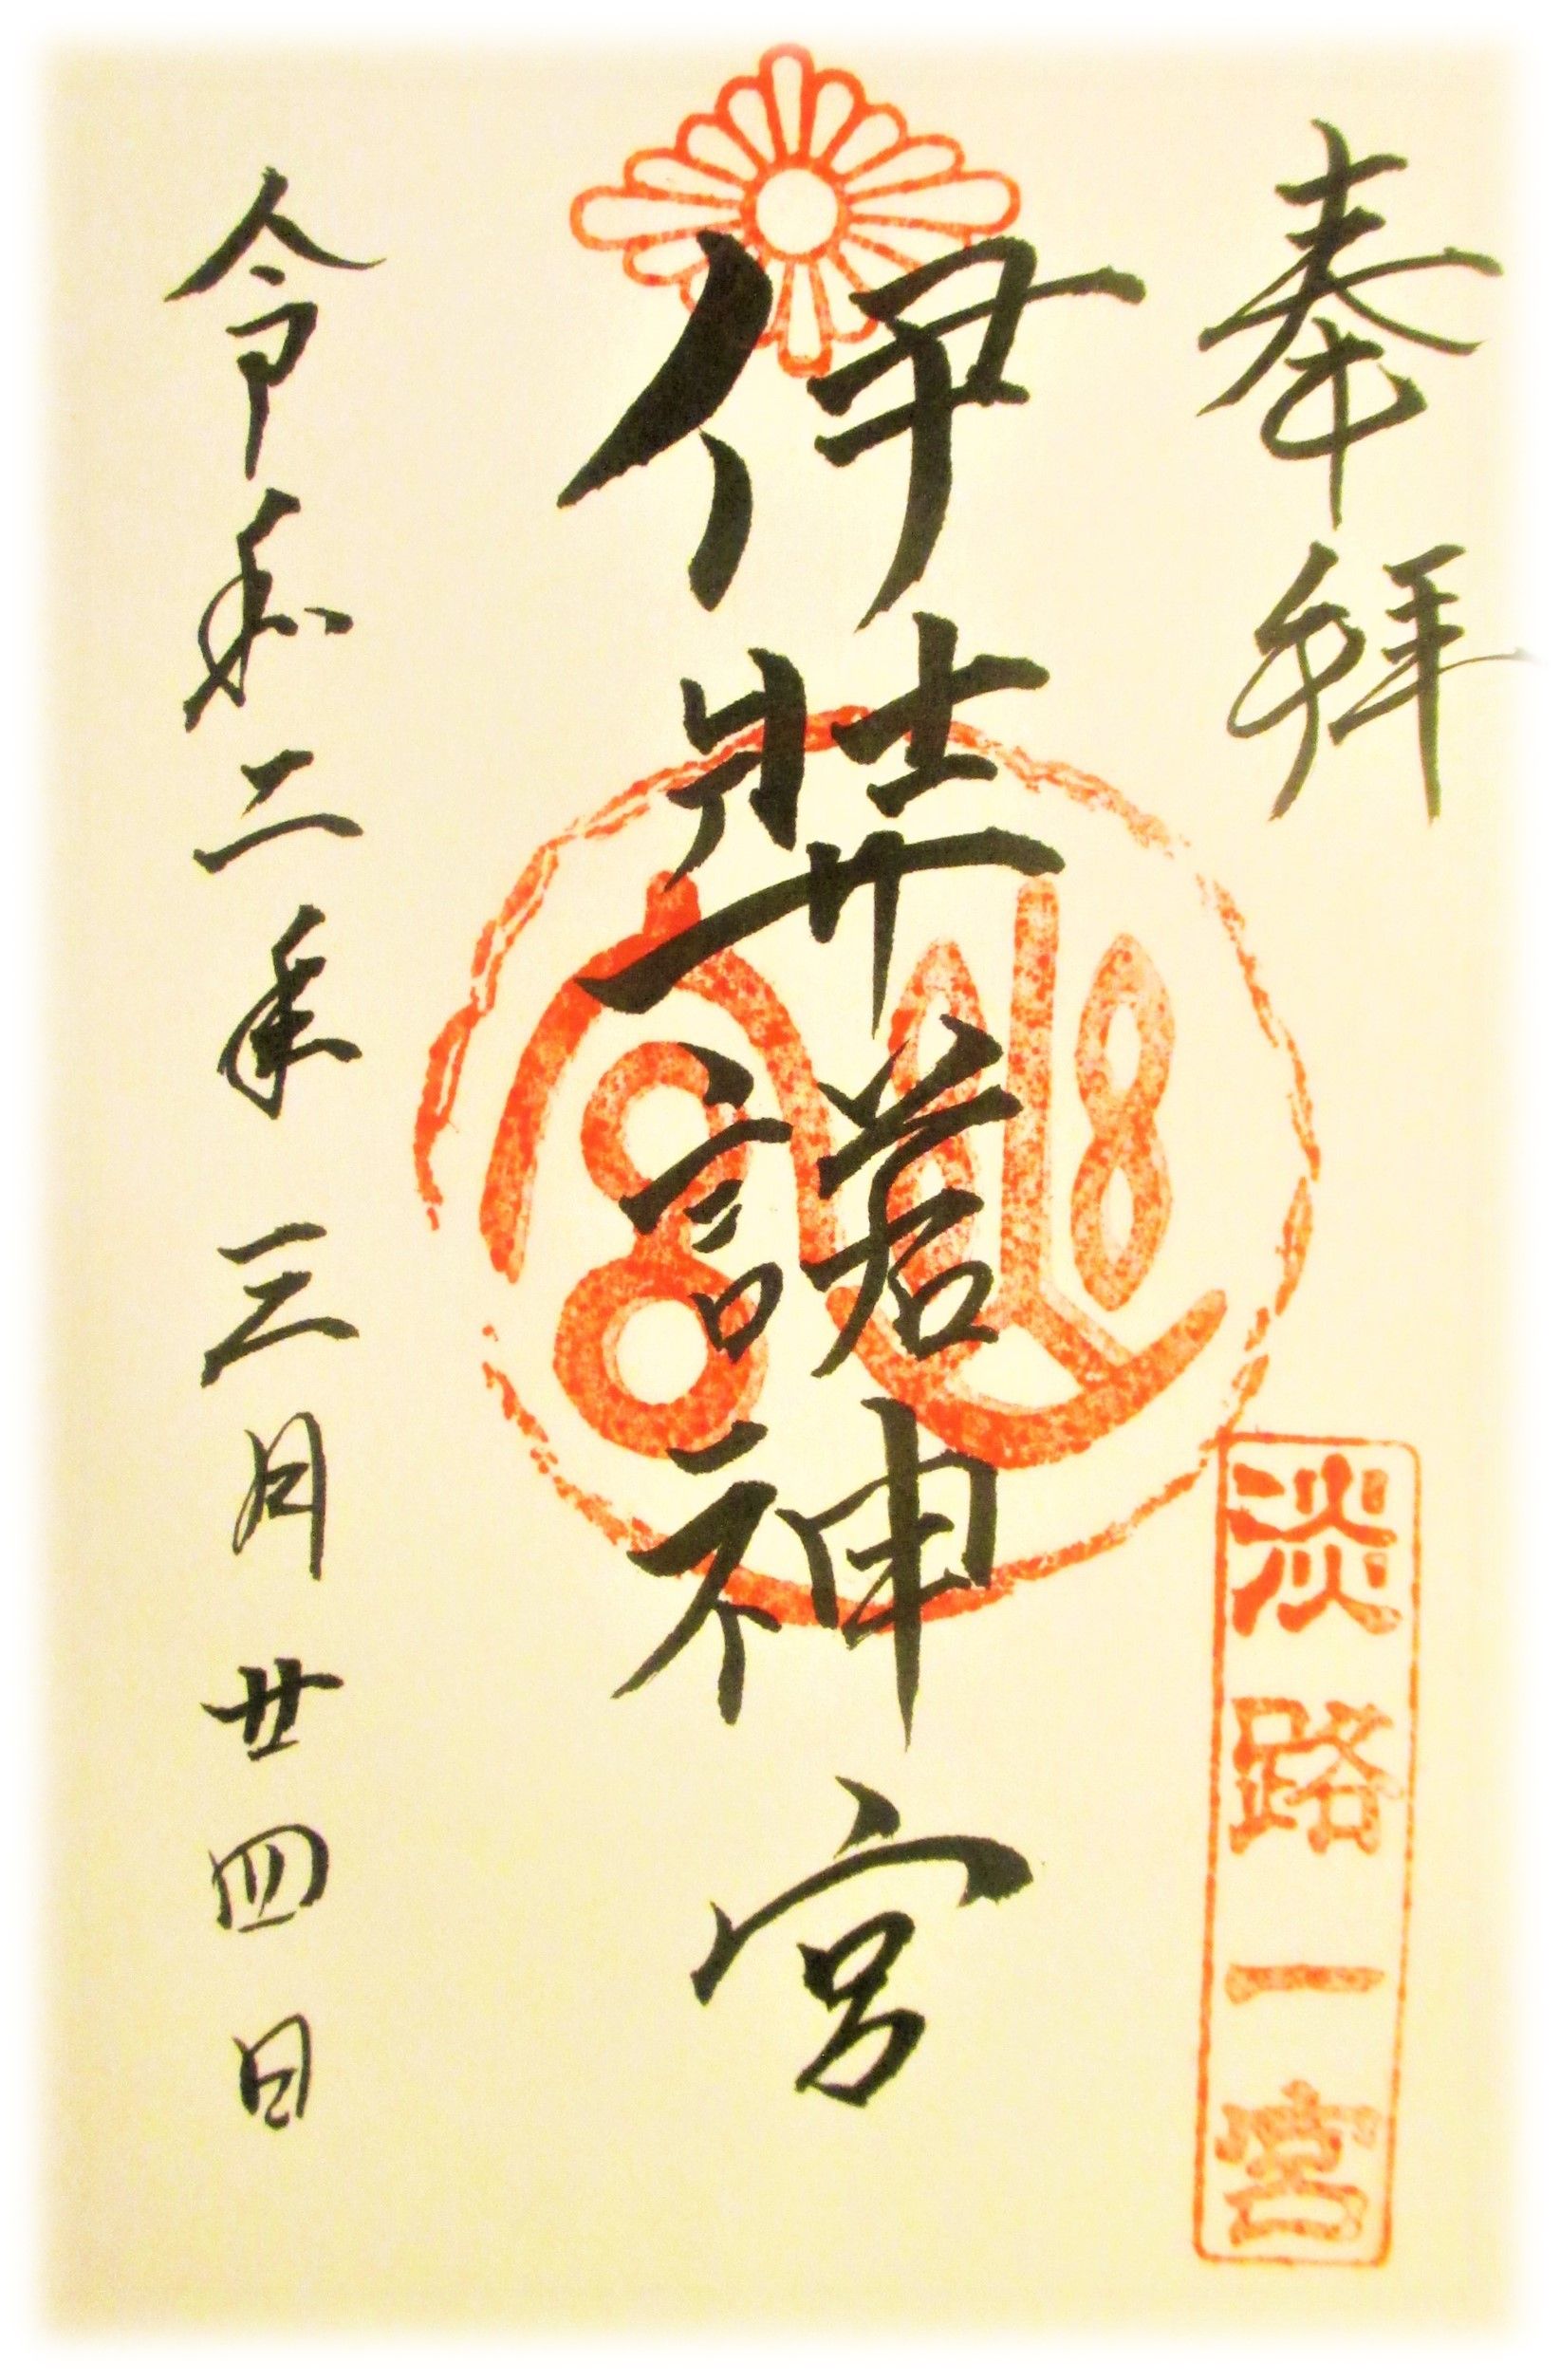 奉拝
淡路一宮
伊弉諾神宮
令和二年三月廿四日